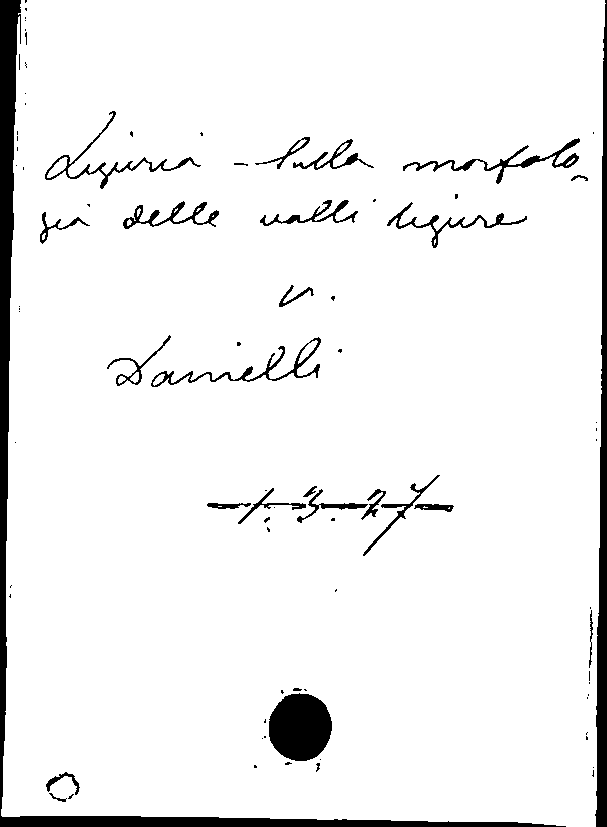 Liguria - Sulla morfolo-
gia delle valli ligure
v.
Dainelli
1.3.27